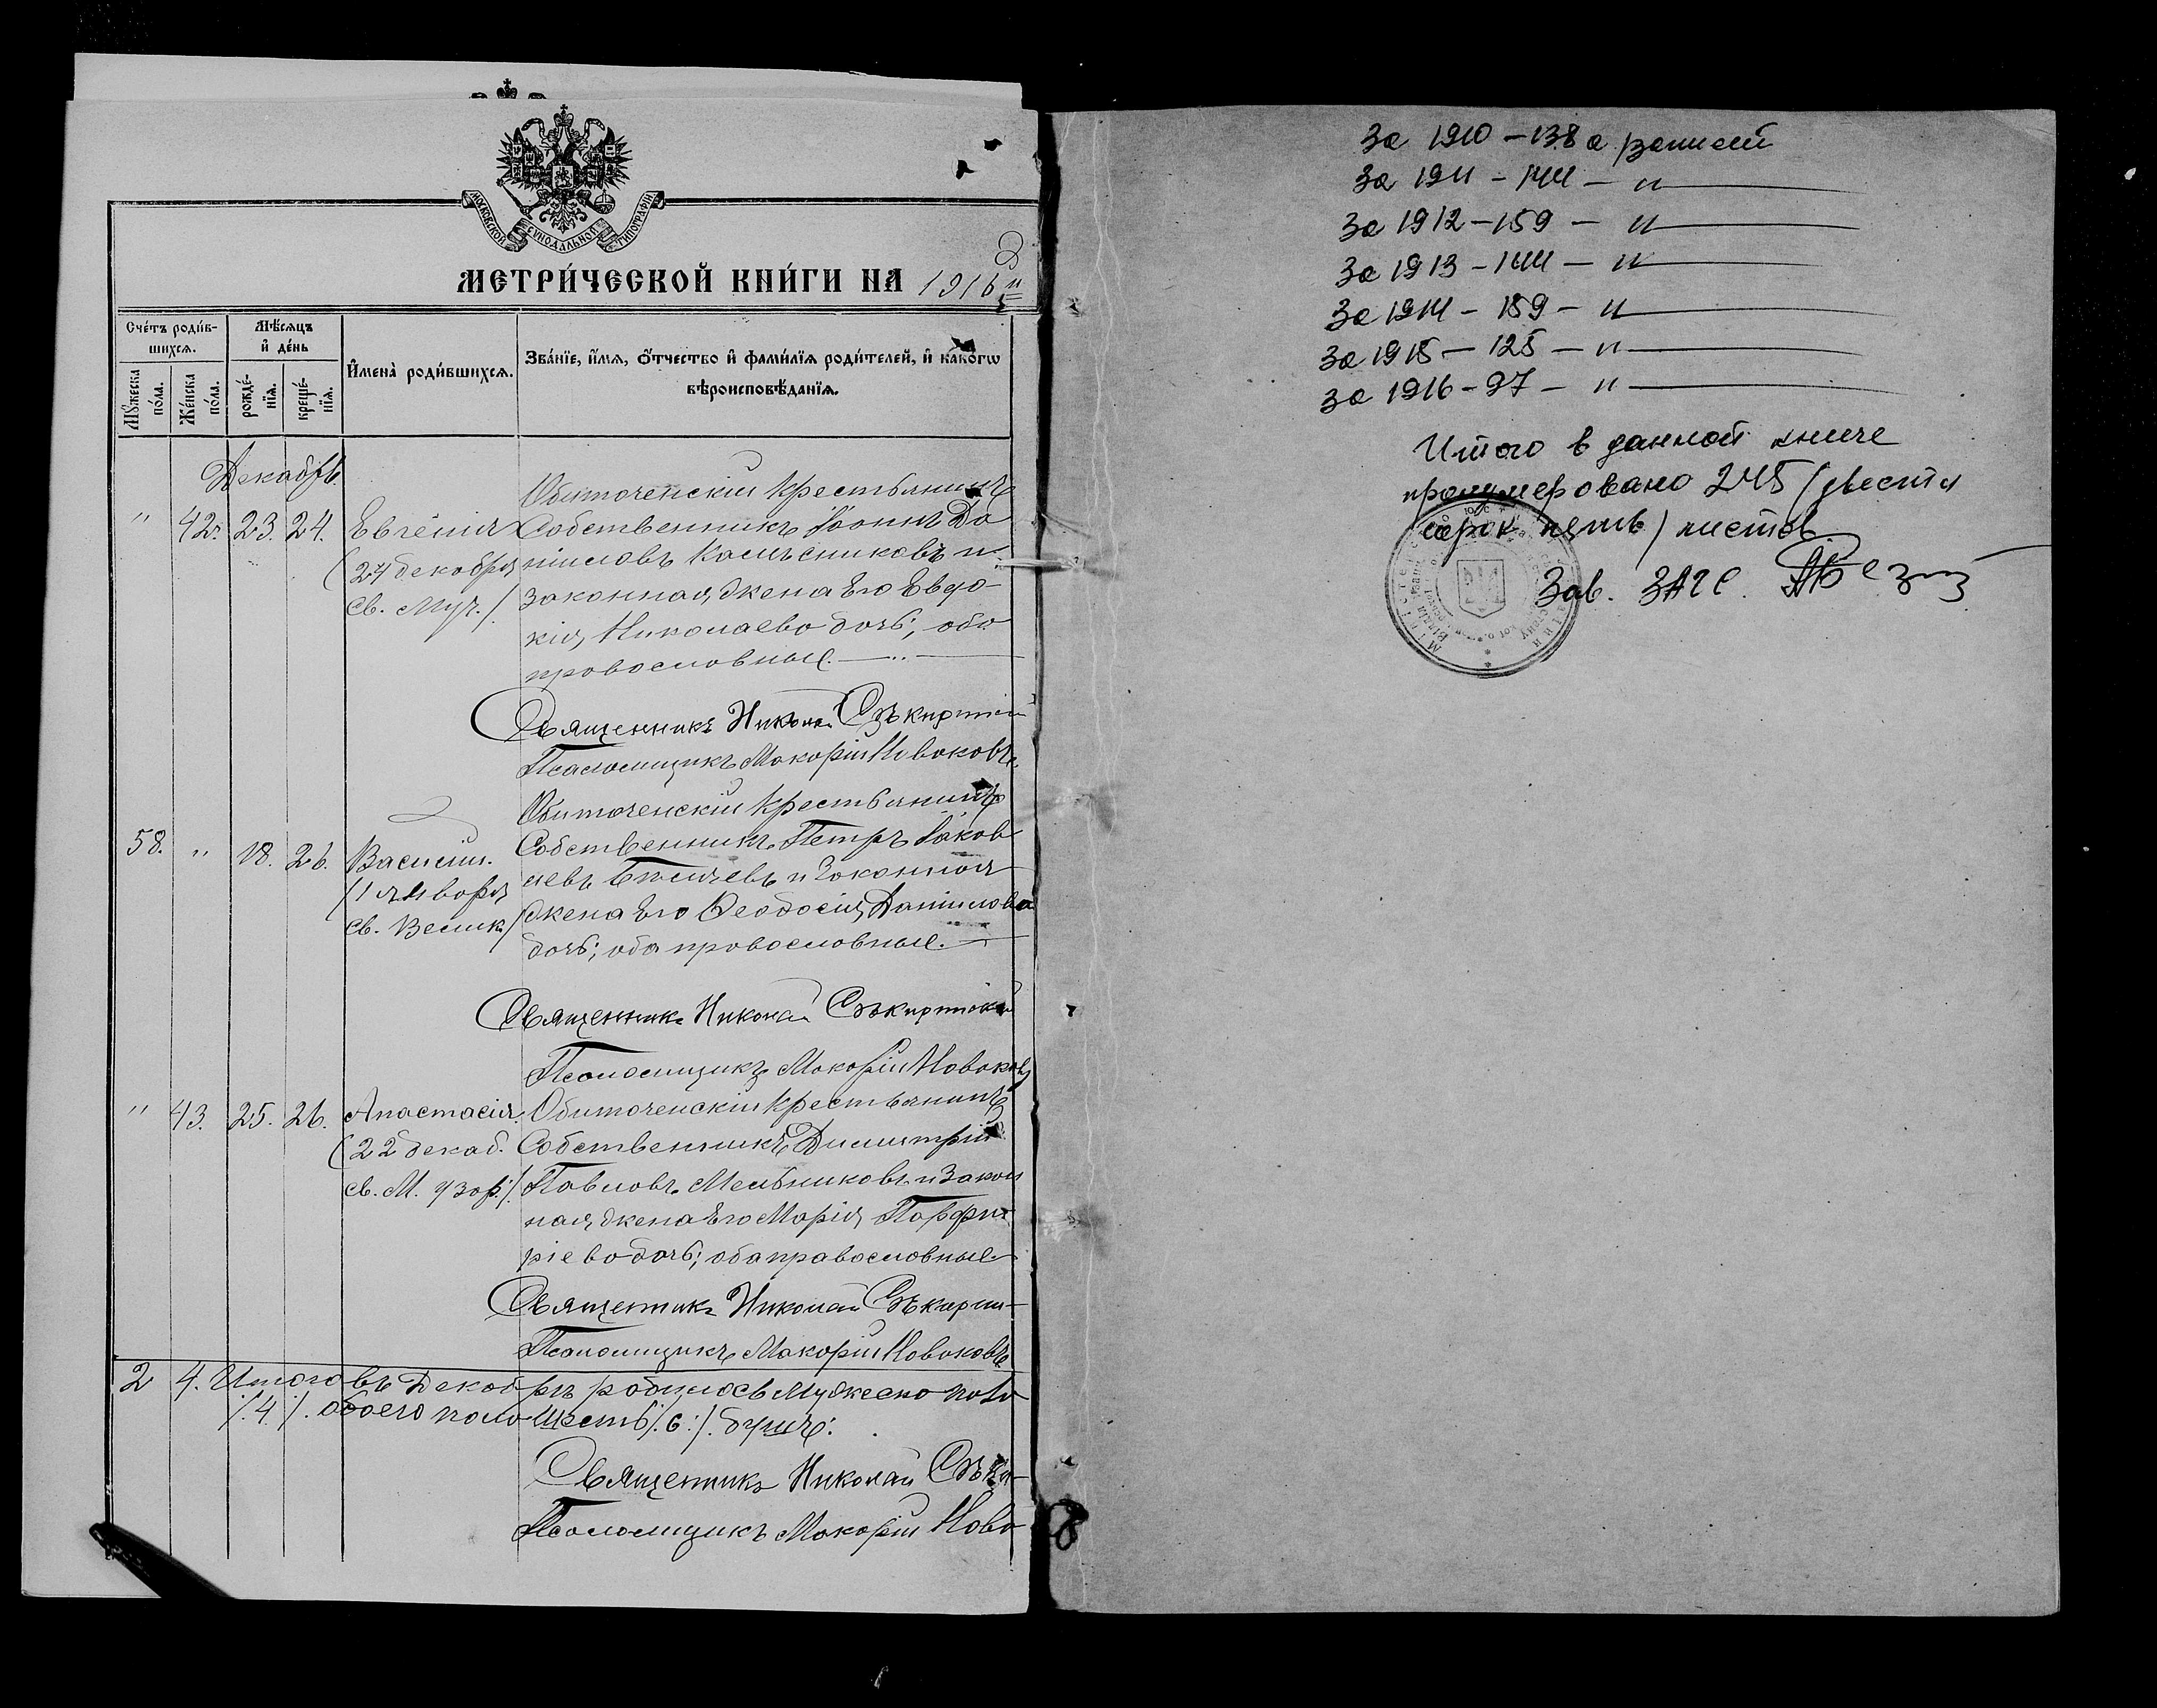 МОСКОВСКОЙ СУНОДАЛЬНОЙ ТИПОГРАФІИ
МЕТРИ́ЧЕСКОЙ КНИ́ГИ НА 1916
Сче́тъ роди́в-
шихсѧ.
Мѣ́сѧцъ
и҆ де́нь
Мꙋ́жеска
по́ла.
Же́нска
по́ла.
рожде́-
нїѧ.
креще́-
нїѧ.
И҆мена̀ роди́вшихсѧ.
Зва́нїе, и҆́мѧ, ѻ҆́тчество и҆ фами́лїѧ роди́телей, и҆ како́гѡ
вѣроисповѣ́данїѧ.
Декабрь.
" 42. 23. 24. Евгенія
(24 декабря
св. муч.)
Обиточенскій крестьянинъ
Собственникъ Іоаннъ Да
ніиловъ и
законная жена его Евдо-
кія, Николаева дочь; оба
православные.
Священникъ Николай
Псаломщикъ Макарій Новаковъ
58. " 18. 26. Василій.
(1 января
св. Велик.)
Обиточенскій крестьянинъ
Собственникъ Петръ Іаков
левъ и законная
жена его Ѳеодосія, Даніилова
дочь; оба православные.
Священникъ Николай
Псаломщикъ Макарій Новаковъ
" 43. 25. 26. Анастасія.
(22 декаб.
св. М. узор.)
Обиточенскій крестьянинъ
Собственникъ Димитрій
Павловъ Мельниковъ и закон
ная жена его Марія, Порфи-
ріева дочь; оба православные
Священникъ Николай
Псаломщикъ Макарій Новаковъ
2 4. Итого въ Декабрѣ родилось мужеско пола
/.4./. обоего пола шесть /.6:/. душъ.
Священникъ Николай
Псаломщикъ Макарій Нова
За 1910 - 138 а/записей
За 1911 - 144 - "
За 1912 - 159 - "
За 1913 - 144 - "
За 1914 - 159 - "
За 1915 - 125 - "
За 1916 - 97 - "
Итого в данной книге
пронумеровано 245 (двести
сорок пять) листов
Зав. ЗАГС.